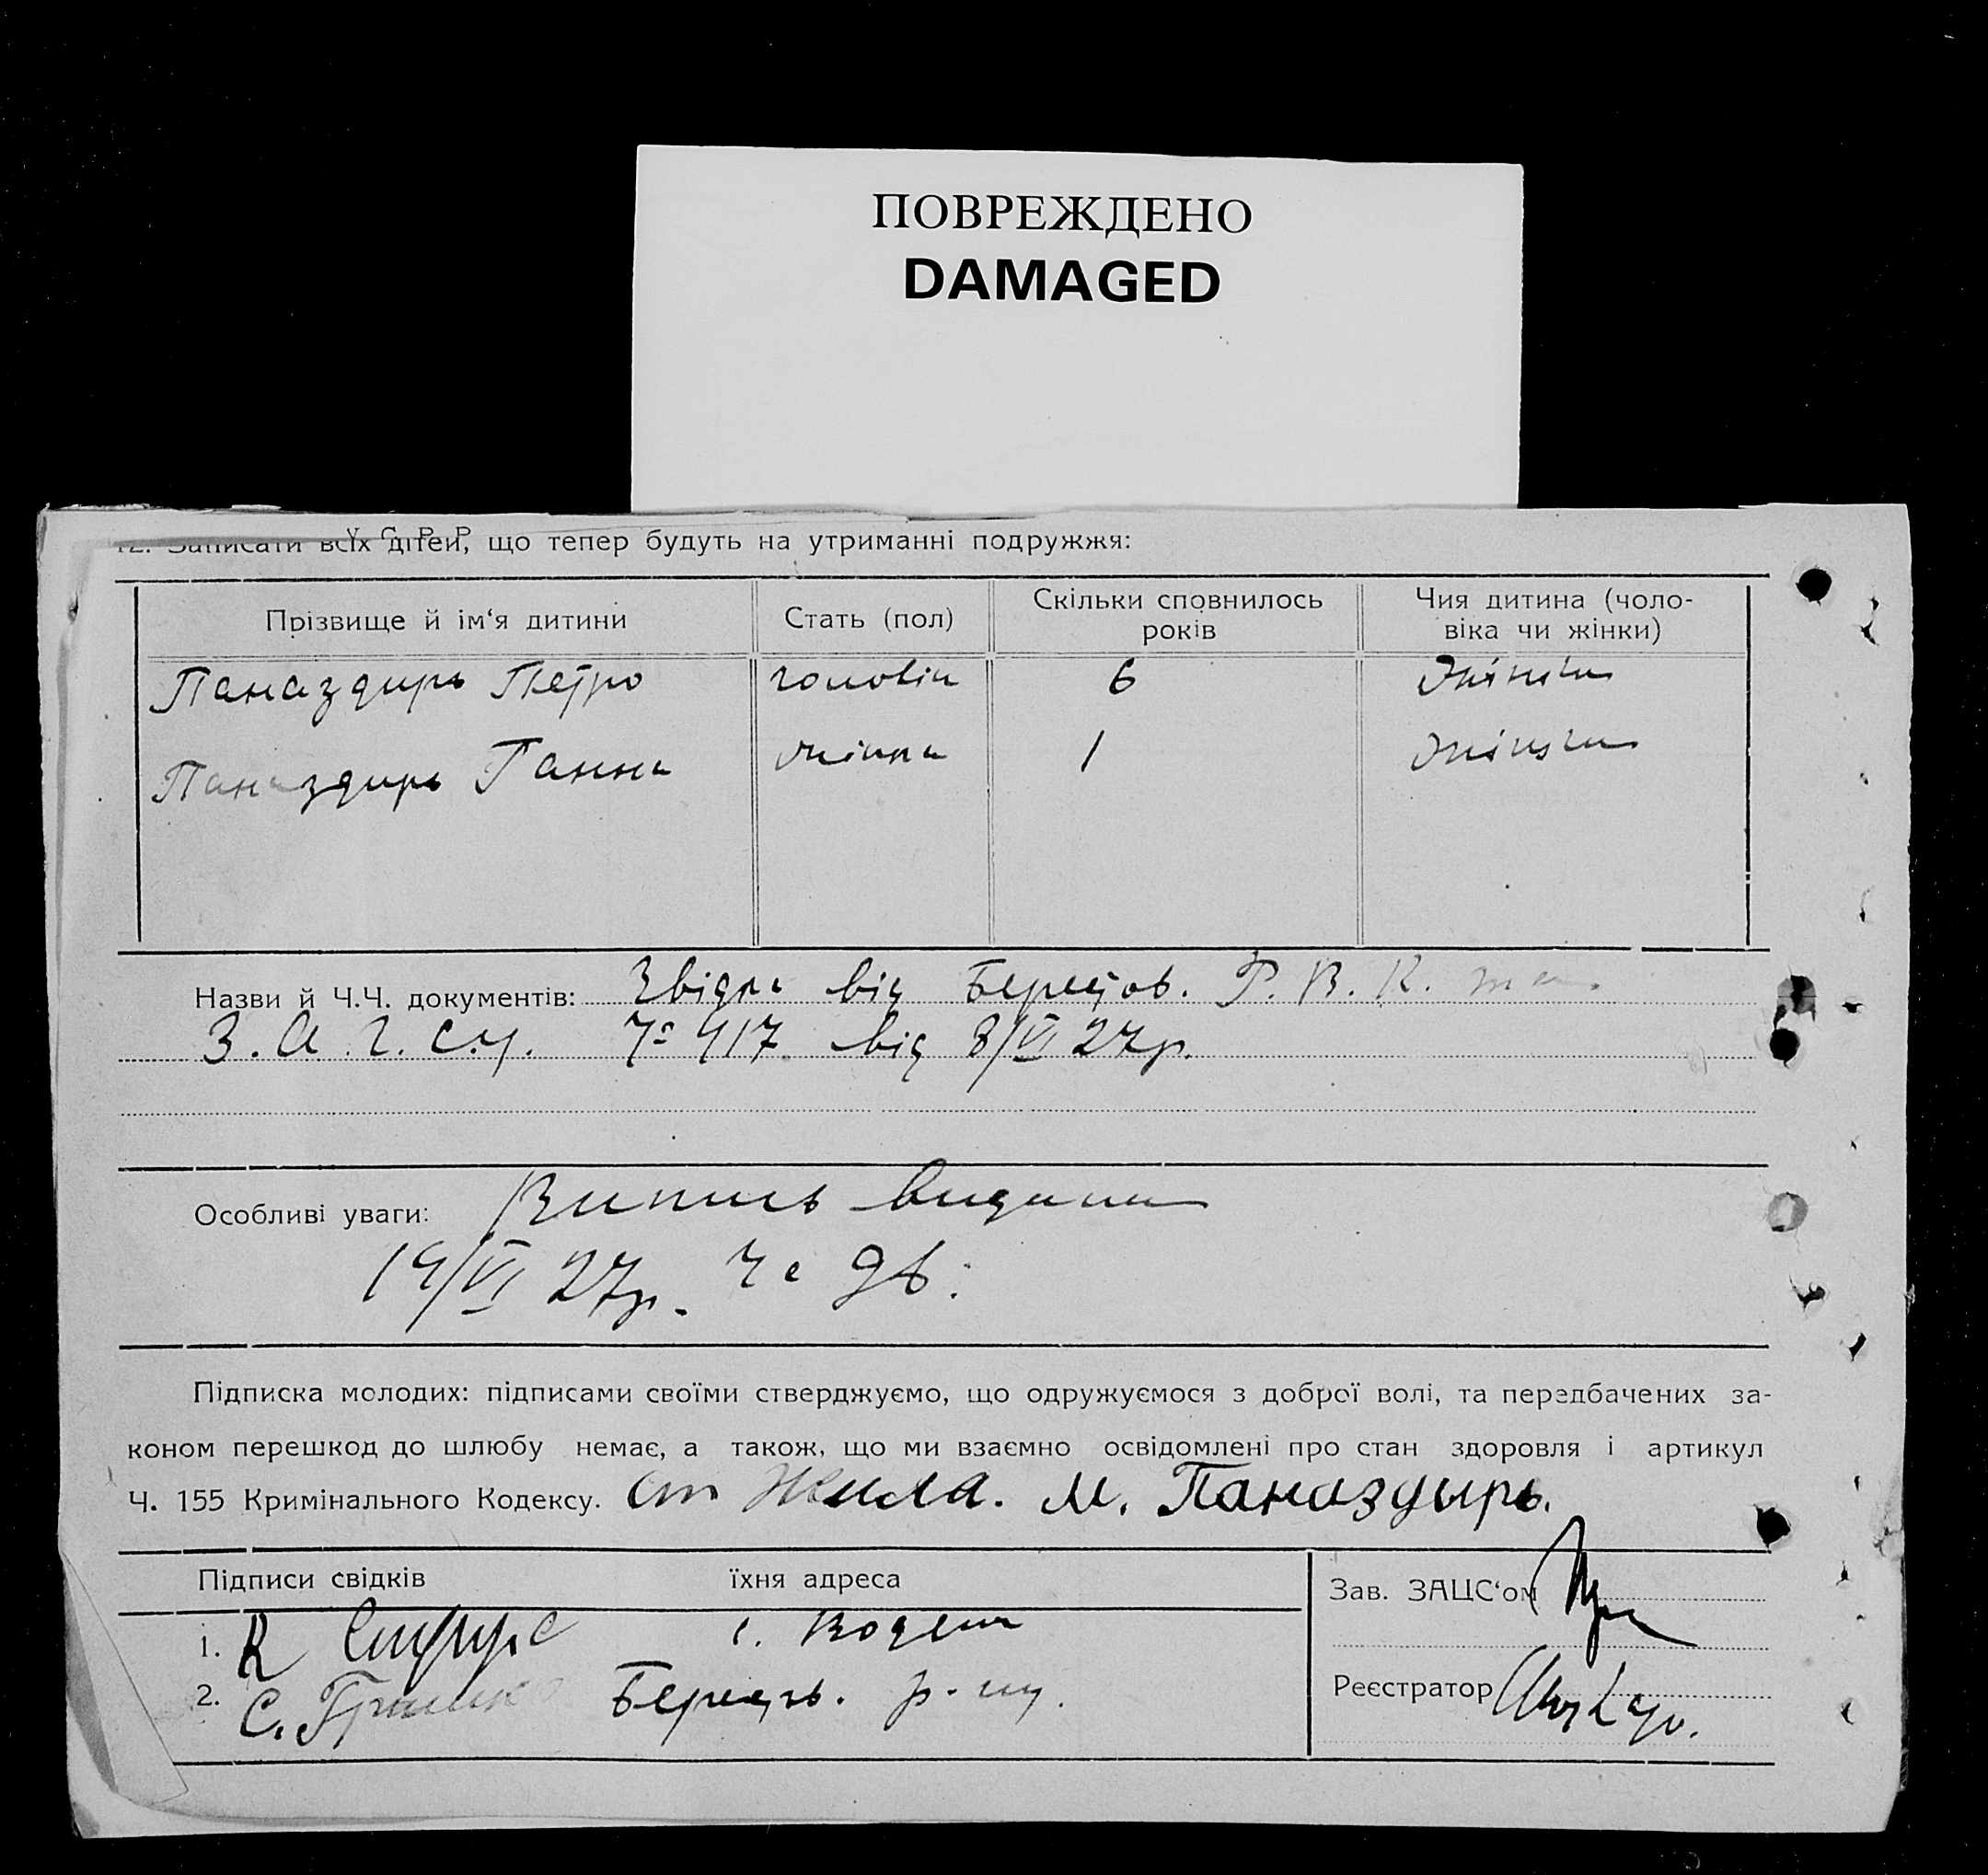 ПОВРЕЖДЕНО
DAMAGED
У. С. Р. Р.
12. Записати всіх дітей, що тепер будуть на утриманні подружжя:
Прізвище й ім‘я дитини
Стать (пол)
Скільки сповнилось років
Чия дитина (чоловіка чи жінки)
Паназдирь Петро чоловіч 6 жіночи
Паназдирь Ганна жіноча 1
Назви й Ч.Ч. документів: від Р. В. К. та
З. А. Г. С. у. 417 від 8/VI 27р.
Особливі уваги: Випись видана
19/VI 27р.
Підписка молодих: підписами своїми стверджуємо, що одружуємося з доброї волі, та передбачених за-
коном перешкод до шлюбу немає, а також, що ми взаємно освідомлені про стан здоровля і артикул
Ч. 155 Кримінального Кодексу. М. Паназдырь.
Підписи свідків їхня адреса
Зав. ЗАЦС‘ом
1. К
2. С. р-ну.
Реєстратор